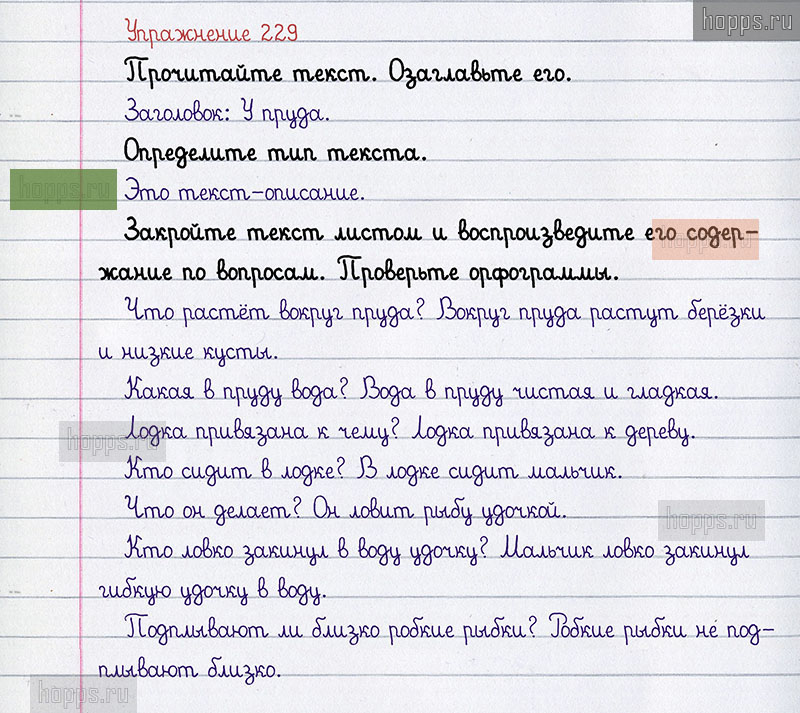 hopps.ru
Упражнение 229
Прочитайте текст. Озаглавьте его.
Заголовок: У пруда.
Определите тип текста.
hopps.ru
Это текст-описание.
Закройте текст листом и воспроизведите его содер-
hopps.ru
жание по вопросам. Проверьте орфограммы.
Что растёт вокруг пруда? Вокруг пруда растут берёзки
и низкие кусты.
Какая в пруду вода? Вода в пруду чистая и гладкая.
Лодка привязана к чему? Лодка привязана к дереву.
hopps.ru
Кто сидит в лодке? В лодке сидит мальчик.
Что он делает? Он ловит рыбу удочкой.
hopps.ru
Кто ловко закинул в воду удочку? Мальчик ловко закинул
гибкую удочку в воду.
Подплывают ли близко робкие рыбки? Робкие рыбки не под-
плывают близко.
hopps.ru